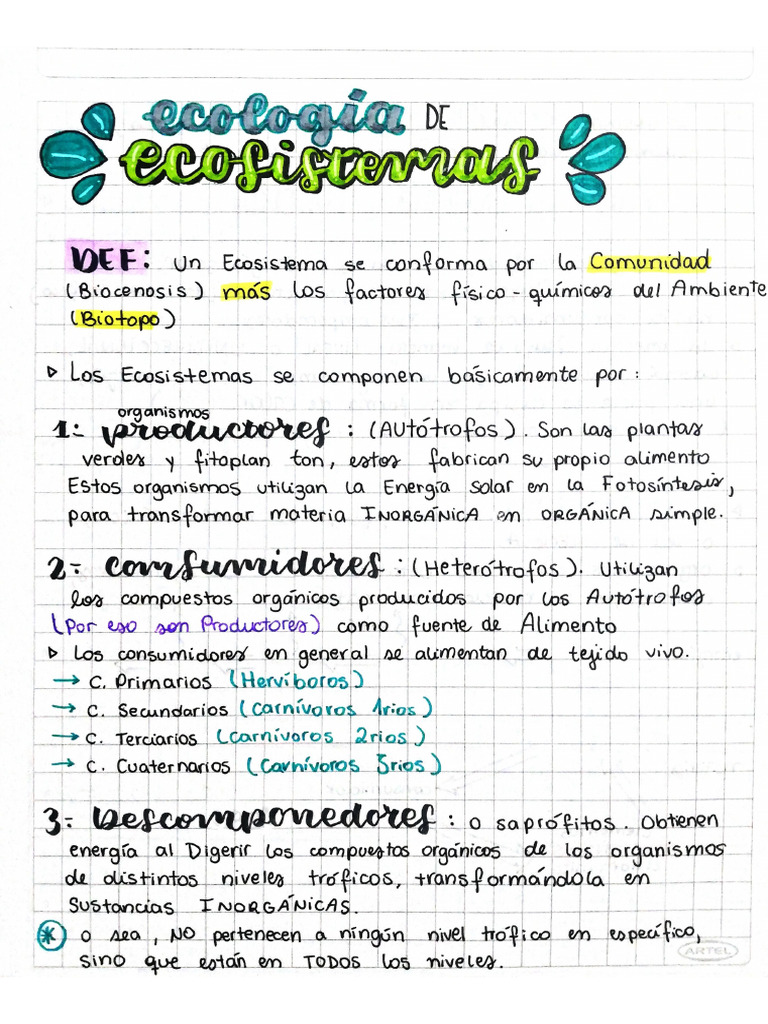 ecología DE
ecosistemas
DEF: Un Ecosistema se conforma por la Comunidad
(Biocenosis) más los factores físico-químicos del Ambiente
(Biotopo)
▷ Los Ecosistemas se componen básicamente por:
organismos
1: productores: (Autótrofos). Son las plantas
verdes y fitoplan ton, estos fabrican su propio alimento
Estos organismos utilizan la Energía solar en la Fotosíntesis,
para transformar materia INORGÁNICA en ORGÁNICA simple.
2- consumidores: (Heterótrofos). Utilizan
los compuestos orgánicos producidos por los Autótrofos
(Por eso son Productores) como fuente de Alimento
▷ Los consumidores en general se alimentan de tejido vivo.
→ C. Primarios (Hervíboros)
→ C. Secundarios (Carnívoros 1rios)
→ C. Terciarios (Carnívoros 2rios)
→ C. Cuaternarios (Carnívoros 3rios)
3- Descomponedores: o saprófitos. Obtienen
energía al Digerir los compuestos orgánicos de los organismos
de distintos niveles tróficos, transformándola en
Sustancias INORGÁNICAS.
* o sea, NO pertenecen a ningún nivel trófico en específico,
sino que están en TODOS los niveles.
ARTEL